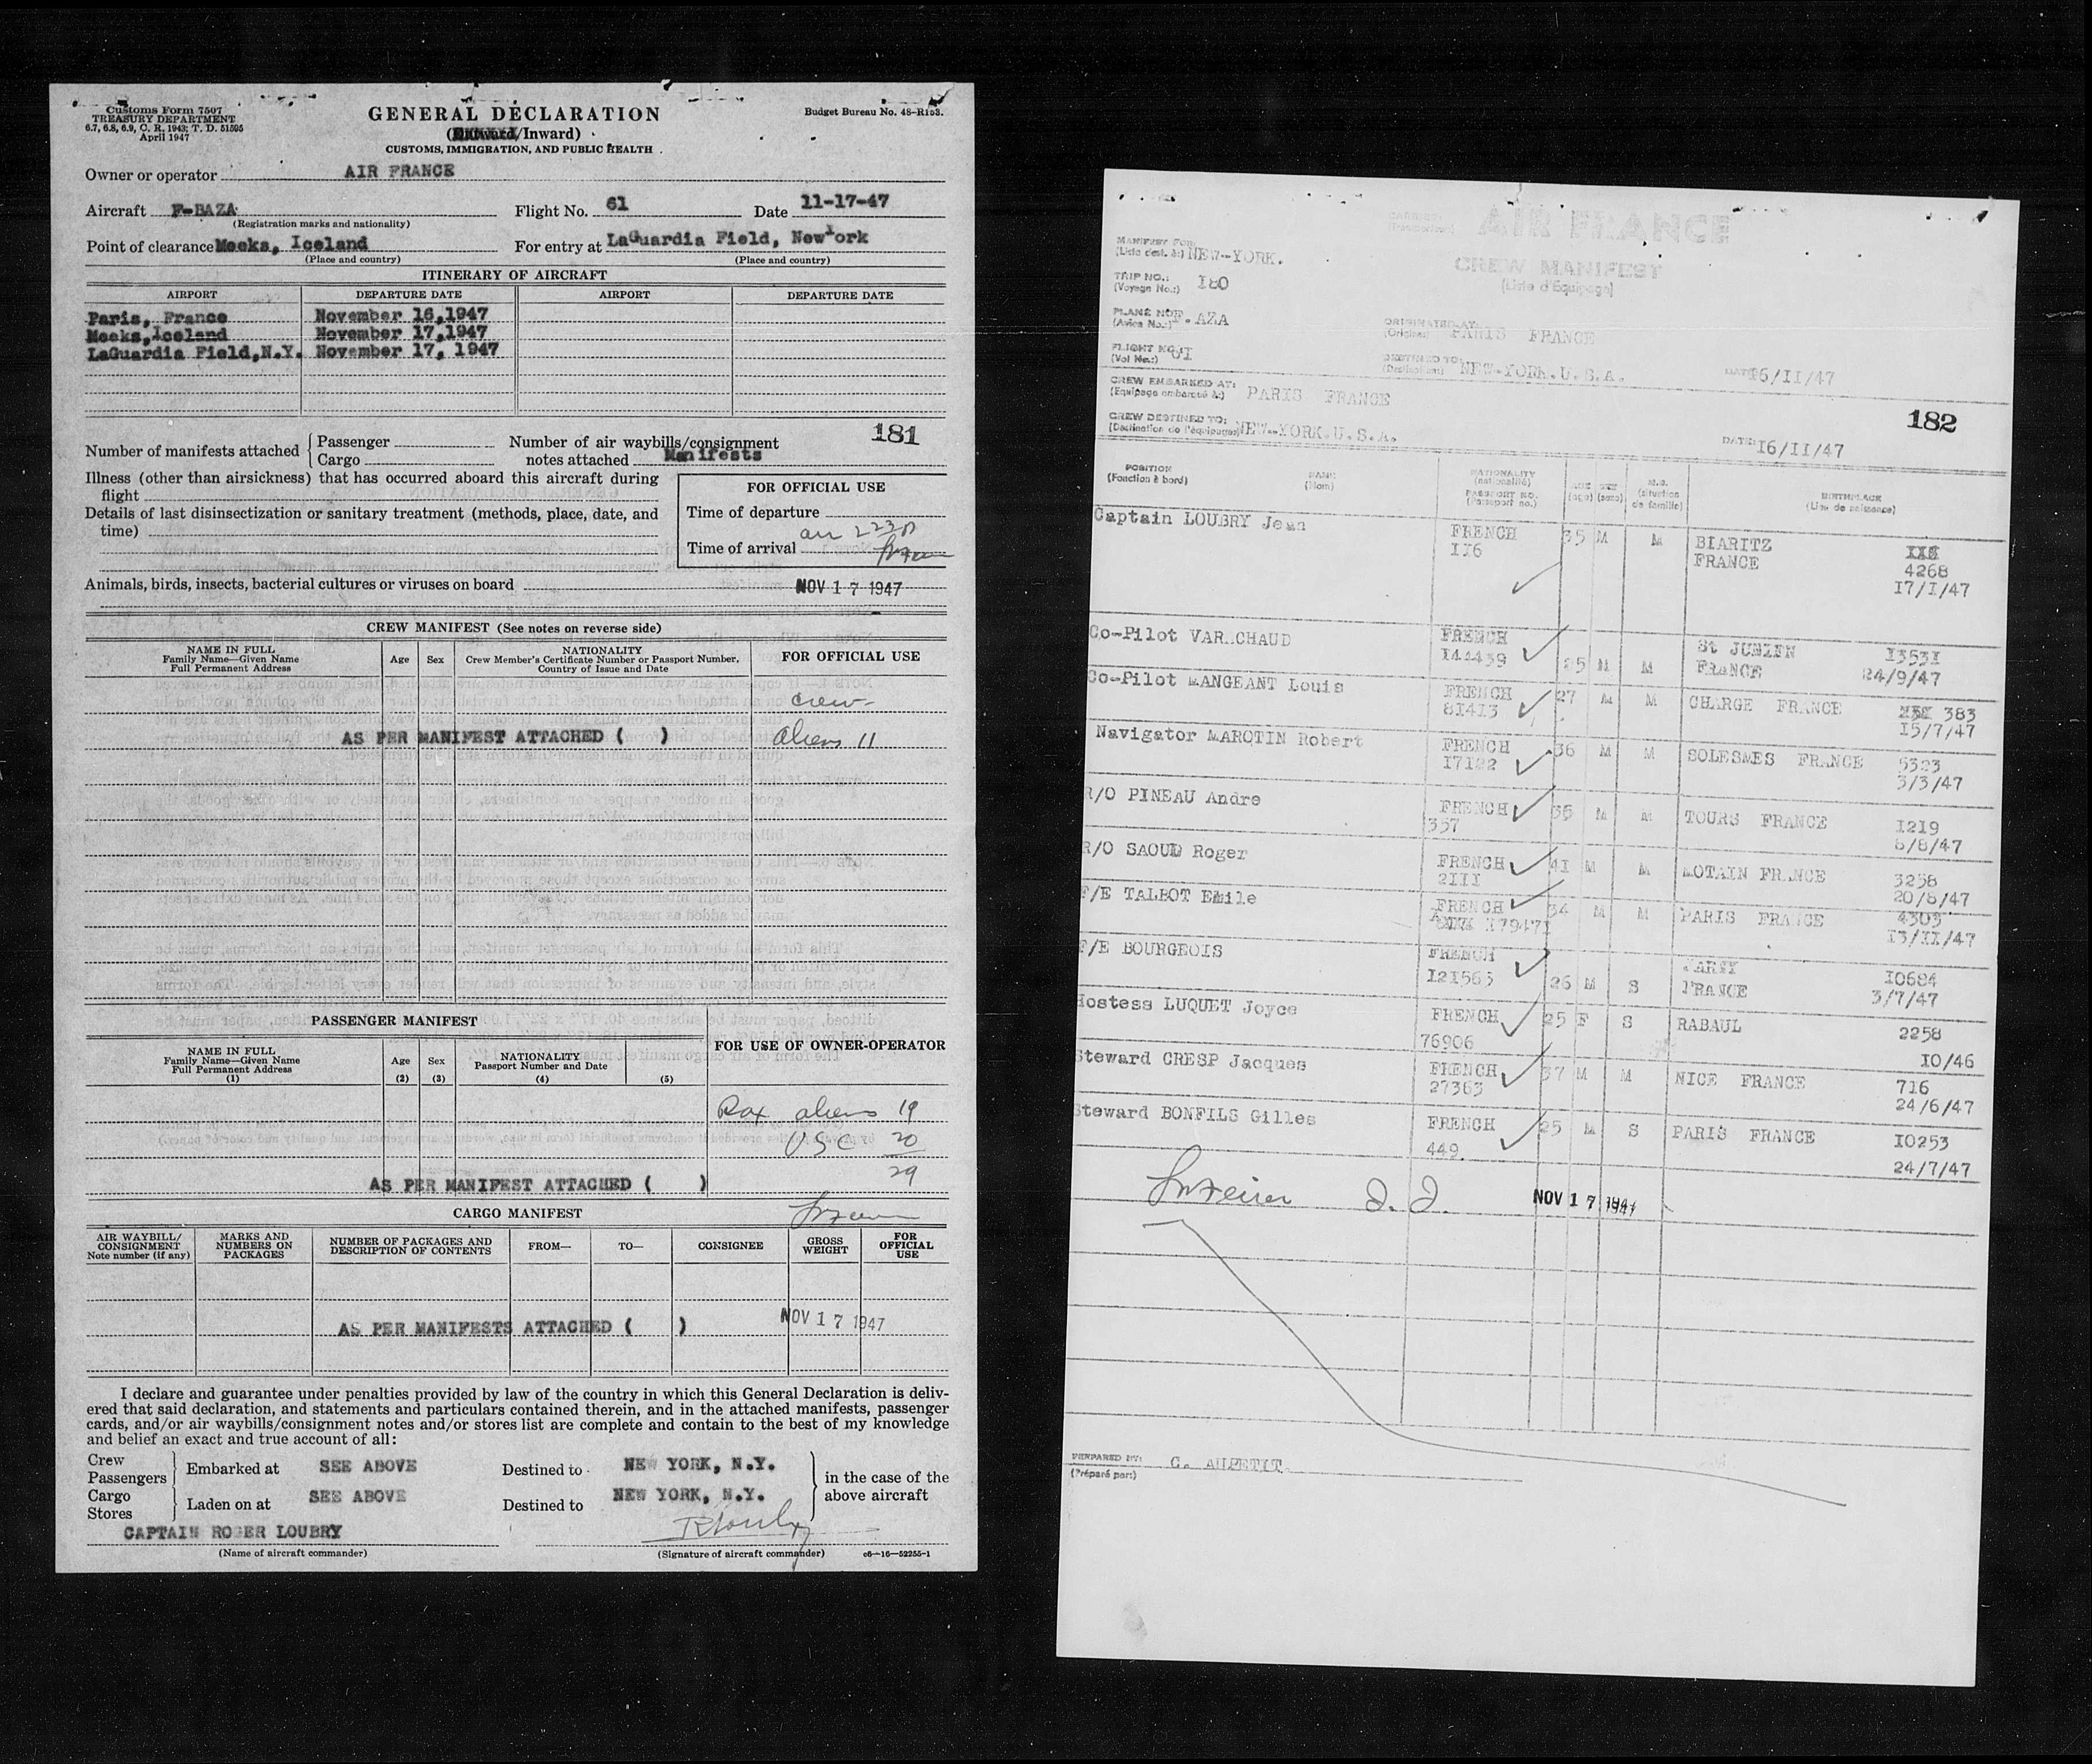 Customs Form 7507
TREASURY DEPARTMENT
6.7, 6.8, 6.9, C. R. 1943; T. D. 51595
April 1947
GENERAL DECLARATION
(Outward/Inward)
CUSTOMS, IMMIGRATION, AND PUBLIC HEALTH
Budget Bureau No. 48-R153.
Owner or operator AIR FRANCE
Aircraft F-BAZA Flight No. 61 Date 11-17-47
(Registration marks and nationality)
Point of clearance Meeks, Iceland For entry at LaGuardia Field, NewYork
(Place and country) (Place and country)
ITINERARY OF AIRCRAFT
AIRPORT DEPARTURE DATE AIRPORT DEPARTURE DATE
Paris, France November 16,1947
Meeks,Iceland November 17,1947
LaGuardia Field,N.Y. November 17, 1947
181
Number of manifests attached Passenger Number of air waybills/consignment
Cargo notes attached Manifests
Illness (other than airsickness) that has occurred aboard this aircraft during
flight
Details of last disinsectization or sanitary treatment (methods, place, date, and
time)
FOR OFFICIAL USE
Time of departure
Time of arrival
Animals, birds, insects, bacterial cultures or viruses on board NOV 17 1947
CREW MANIFEST (See notes on reverse side)
NAME IN FULL
Family Name—Given Name
Full Permanent Address
Age Sex
NATIONALITY
Crew Member's Certificate Number or Passport Number,
Country of Issue and Date
FOR OFFICIAL USE
crew-
AS PER MANIFEST ATTACHED ( ) aliens 11
PASSENGER MANIFEST
NAME IN FULL
Family Name—Given Name
Full Permanent Address
(1)
Age
(2)
Sex
(3)
NATIONALITY
Passport Number and Date
(4) (5)
FOR USE OF OWNER-OPERATOR
Pax aliens 19
USC 20
29
AS PER MANIFEST ATTACHED ( )
CARGO MANIFEST
AIR WAYBILL/
CONSIGNMENT
Note number (if any)
MARKS AND
NUMBERS ON
PACKAGES
NUMBER OF PACKAGES AND
DESCRIPTION OF CONTENTS
FROM— TO— CONSIGNEE
GROSS
WEIGHT
FOR
OFFICIAL
USE
AS PER MANIFESTS ATTACHED ( ) NOV 17 1947
I declare and guarantee under penalties provided by law of the country in which this General Declaration is deliv-
ered that said declaration, and statements and particulars contained therein, and in the attached manifests, passenger
cards, and/or air waybills/consignment notes and/or stores list are complete and contain to the best of my knowledge
and belief an exact and true account of all:
Crew
Passengers Embarked at SEE ABOVE Destined to NEW YORK, N.Y. in the case of the
Cargo
Stores Laden on at SEE ABOVE Destined to NEW YORK, N.Y. above aircraft
CAPTAIN ROGER LOUBRY
(Name of aircraft commander) (Signature of aircraft commander) c6—16—52255-1
CARRIER:
(Transporteur) AIR FRANCE
MANIFEST FOR:
(Liste dest. à:) NEW-YORK.
CREW MANIFEST
(Liste d'Equipage)
TRIP NO.:
(Voyage No.:) I80
PLANE NO
(Avion No.:) F.AZA
ORIGINATED AT:
(Origine) PARIS FRANCE
FLIGHT NO.:
(Vol No.:) 6I
DESTINED TO:
(Destination) NEW-YORK.U.S.A. DATE I6/II/47
CREW EMBARKED AT:
(Equipage embarqué à:) PARIS FRANCE
182
CREW DESTINED TO:
(Destination de l'équipage) NEW-YORK.U.S.A. DATE: I6/II/47
POSITION
(Fonction à bord)
NAME
(Nom)
NATIONALITY
(nationalité)
PASSPORT NO.
(Passeport no.)
AGE
(age)
SEX
(sexe)
M.S.
(situation
de famille)
BIRTHPLACE
(Lieu de naissance)
Captain LOUBRY Jean FRENCH 35 M M BIARITZ
II6 FRANCE 4268
I7/I/47
Co-Pilot VAR CHAUD FRENCH St JUNIEN I353I
144439 25 M M FRANCE 24/9/47
Co-Pilot MANGEANT Louis FRENCH 27 M M CHARGE FRANCE 383
81413 I5/7/47
Navigator MAROTIN Robert FRENCH 36 M M SOLESMES FRANCE 5323
I7122 3/3/47
R/O PINEAU Andre FRENCH 36 M M TOURS FRANCE I219
357 8/8/47
R/O SAOUD Roger FRENCH 41 M M MOTAIN FRANCE 3258
2III 20/8/47
F/E TALBOT Emile FRENCH 34 M M PARIS FRANCE 4303
I3/II/47
F/E BOURGEOIS FRENCH 26 M S I0684
I21565 FRANCE 3/7/47
Hostess LUQUET Joyce FRENCH 25 F S RABAUL 2258
76906 I0/46
Steward CRESP Jacques FRENCH 37 M M NICE FRANCE 716
27363 24/6/47
Steward BONFILS Gilles FRENCH 25 M S PARIS FRANCE I0253
449. 24/7/47
NOV 17 1947
PREPARED BY:
(Préparé par:) C. AUPETIT.